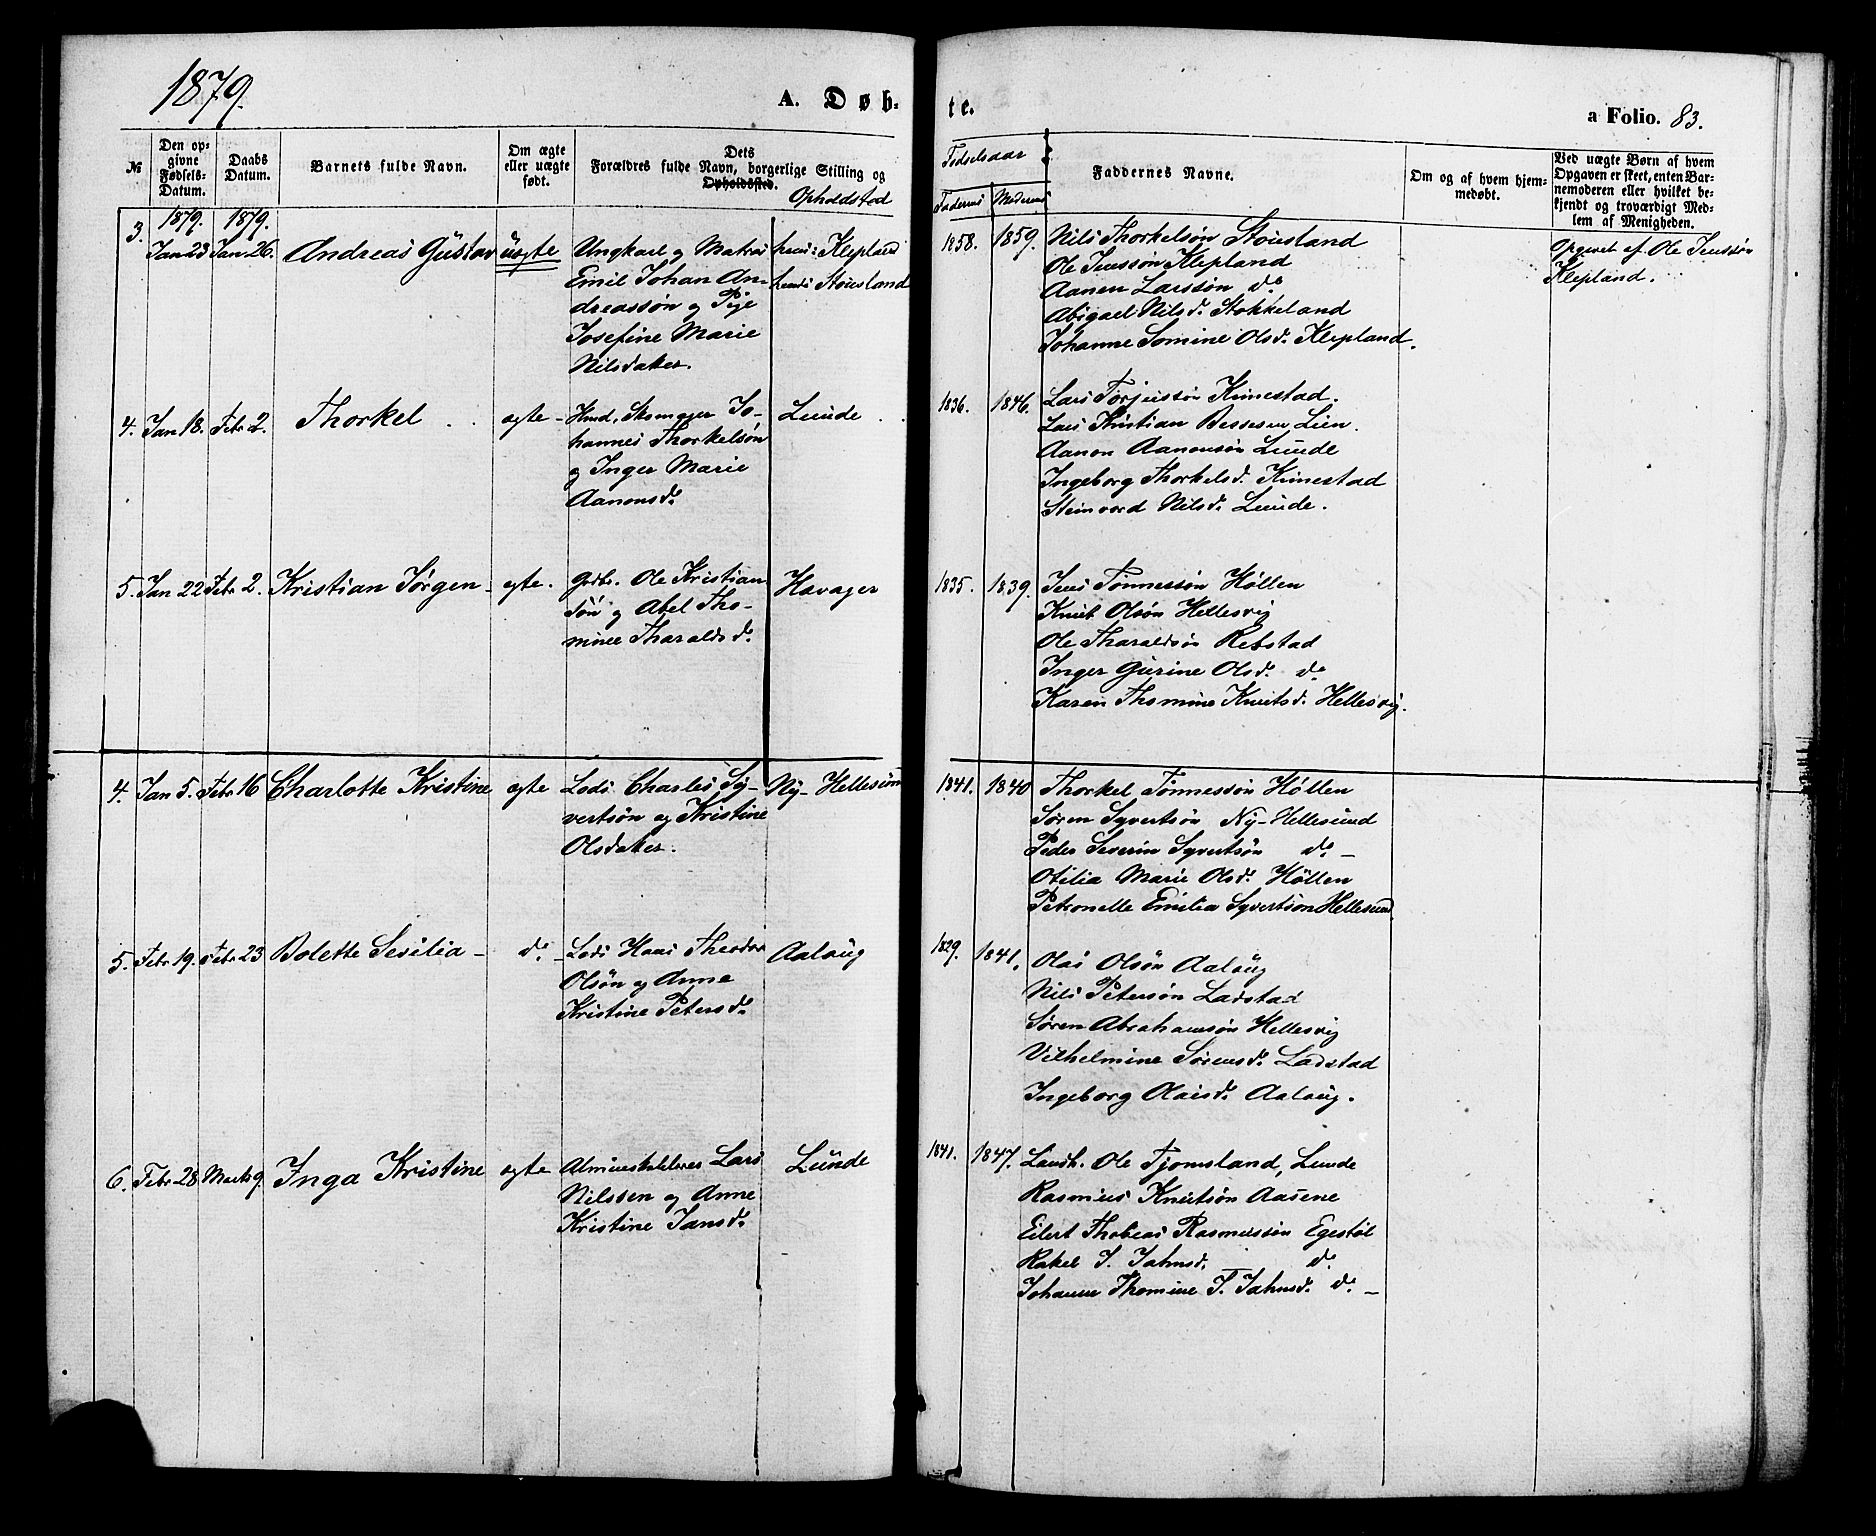 1879.
A. Døb-
te.
a Folio. 83.
№
Den op-
givne
Fødsels-
Datum.
Daabs
Datum.
Barnets fulde Navn.
Om ægte
eller uægte
født.
Dets
Forældres fulde Navn, borgerlige Stilling og
Opholdssted.
Opholdsted
Fødselsaar
Faderens
Moderens
Faddernes Navne.
Om og af hvem hjem-
medøbt.
Ved uægte Børn af hvem
Opgaven er skeet, enten Bar-
nemoderen eller hvilket be-
kjendt og troværdigt Med-
lem af Menigheden.
1879. 1879.
3. Jan 23 Jan 26. Andreas Gustav uægte
Ungkarl og Matros
Emil Johan An-
dreassøn og Pige
Josefine Marie
Nilsdatter.
hans: Klepland
hendes Stousland
1858. 1859.
Nils Thorkelsøn Stousland
Ole Jenssøn Klepland
Aanen Larssøn do
Abigael Nilsd. Stokkeland
Johanne Tomine Olsd. Klepland.
Opgivet af Ole Jenssøn
Klepland.
4. Jan 18. Febr 2. Thorkel ægte -
Hmd, Skomager Jo-
hannes Thorkelsøn
og Inger Marie
Aanonsd.
Lunde
1836. 1846.
Lars Torjussøn Kimestad.
Lars Kristian Bessesen Lien.
Aanon Aanonsøn Lunde
Ingeborg Thorkelsd. Kimestad
Steinvord Nilsd. Lunde.
5. Jan 22 Febr 2. Kristian Jørgen - ægte.
Grdbr. Ole Kristian
søn og Abel Tho-
mine Tharaldsd.
Havager
1835. 1839.
Jens Tønnessøn Høllen
Knut Olsøn Hellesvig
Ole Tharaldsøn Rebstad
Inger Gurine Olsd. do
Karen Thomine Knutsd. Hellesvig.
4. Jan 5. Febr 16 Charlotte Kristine ægte
Lods Charles Sy-
vertsøn og Kristine
Olsdatter.
Ny-Hellesund
1841. 1840
Thorkel Tønnessøn Høllen
Søren Syvertsøn Ny-Hellesund
Peder Severin Syvertsøn do -
Otilia Marie Olsd. Høllen
Petronelle Emilia Syvertson Hellesund
5. Febr 19. Febr 23 Bolette Sesilia - do -
Lods Hans Theodor
Olsøn og Anne
Kristine Petersd.
Aaløug
1829. 1841.
Olai Olsøn Aaløug
Nils Petersøn Ladstad
Søren Abrahamsøn Hellesvig
Vilhelmine Sørensd. Ladstad
Ingeborg Olaisd. Aaløug.
6. Febr 28 Marts 9. Inga Kristine ægte
Almueskolelærer Lars
Nilssen og Anne
Kristine Jansd.
Lunde
1841. 1847.
Landh. Ole Tjomsland, Lunde
Rasmus Knutsøn Aasene
Eilert Thobias Rasmussøn Egestøl
Rakel T. Jahnsd. do
Johanne Thomine T. Jahnsd. do -